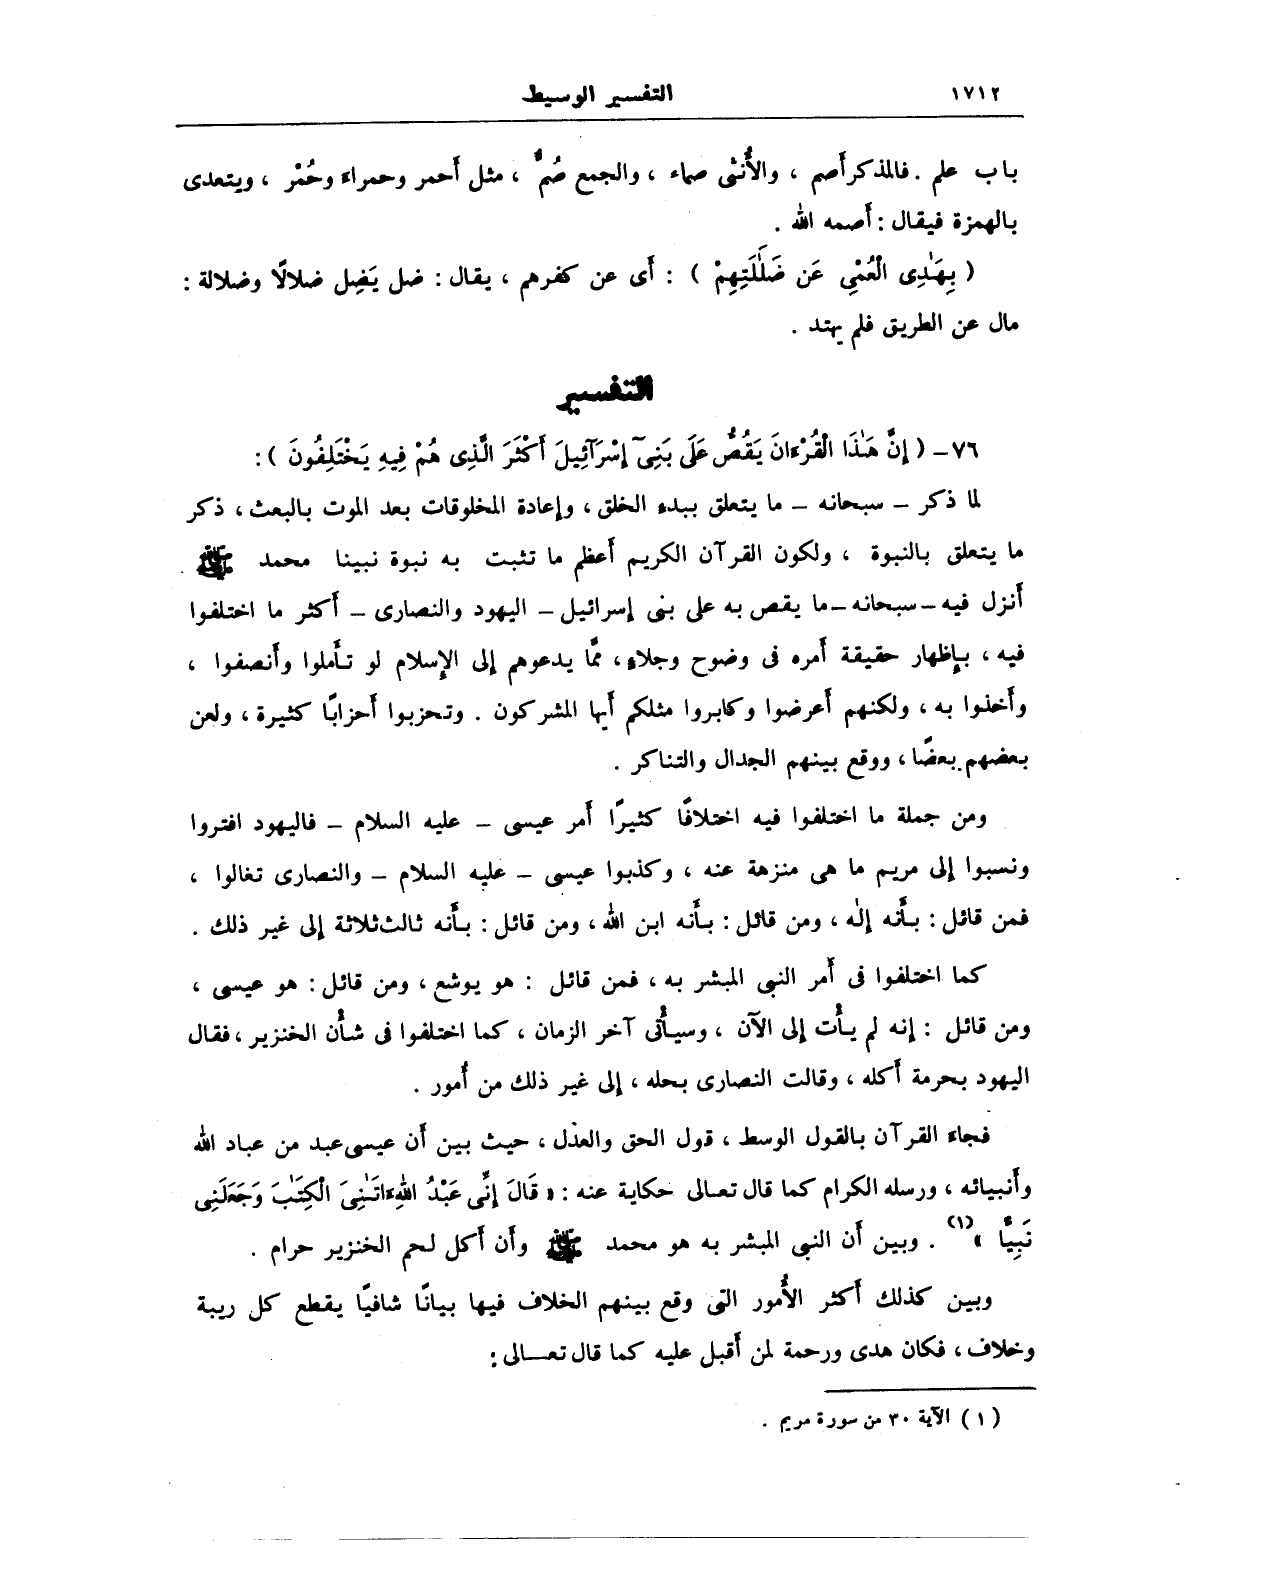 ١٧١٢ التفسير الوسيط
باب علم . فالمذكر أَصم ، والأُنثى صماء ، والجمع صُمٌّ ، مثل أَحمر وحمراء وحُمْر ، ويتعدى
بالهمزة فيقال : أَصمه الله .
( بِهَٰدِى الْعُمْىِ عَن ضَلَٰلَتِهِمْ ) : أَى عن كفرهم ، يقال : ضل يَضِل ضلالًا وضلالة :
مال عن الطريق فلم يهتد .
التفسير
٧٦ – ( إِنَّ هَٰذَا الْقُرْءَانَ يَقُصُّ عَلَى بَنِىٓ إِسْرَآئِيلَ أَكْثَرَ الَّذِى هُمْ فِيهِ يَخْتَلِفُونَ ) :
لما ذكر – سبحانه – ما يتعلق ببدء الخلق ، وإعادة المخلوقات بعد الموت بالبعث ، ذكر
ما يتعلق بالنبوة ، ولكون القرآن الكريم أَعظم ما تثبت به نبوة نبينا محمد ﷺ .
أَنزل فيه – سبحانه – ما يقص به على بنى إسرائيل – اليهود والنصارى – أَكثر ما اختلفوا
فيه ، بإظهار حقيقة أَمره فى وضوح وجلاءٍ ، ممَّا يدعوهم إلى الإسلام لو تأَملوا وأَنصفوا ،
وأَخذوا به ، ولكنهم أَعرضوا وكابروا مثلكم أَيها المشركون . وتحزبوا أَحزابًا كثيرة ، ولعن
بعضهم بعضًا ، ووقع بينهم الجدال والتناكر .
ومن جملة ما اختلفوا فيه اختلافًا كثيرًا أَمر عيسى – عليه السلام – فاليهود افتروا
ونسبوا إلى مريم ما هى منزهة عنه ، وكذبوا عيسى – عليه السلام – والنصارى تغالوا ،
فمن قائل : بأَنه إلٰه ، ومن قائل : بأَنه ابن الله ، ومن قائل : بأَنه ثالث ثلاثة إلى غير ذلك .
كما اختلفوا فى أَمر النبى المبشر به ، فمن قائل : هو يوشع ، ومن قائل : هو عيسى ،
ومن قائل : إنه لم يأْت إلى الآن ، وسيأْتى آخر الزمان ، كما اختلفوا فى شأْن الخنزير ، فقال
اليهود بحرمة أَكله ، وقالت النصارى بحله ، إلى غير ذلك من أُمور .
فجاء القرآن بالقول الوسط ، قول الحق والعدل ، حيث بين أَن عيسى عبد من عباد الله
وأَنبيائه ، ورسله الكرام كما قال تعالى حكاية عنه : « قَالَ إِنِّى عَبْدُ اللهِ ءَاتَٰنِىَ الْكِتَٰبَ وَجَعَلَنِى
نَبِيًّا » (١) . وبين أَن النبى المبشر به هو محمد ﷺ وأَن أَكل لحم الخنزير حرام .
وبين كذلك أَكثر الأُمور التى وقع بينهم الخلاف فيها بيانًا شافيًا يقطع كل ريبة
وخلاف ، فكان هدى ورحمة لمن أَقبل عليه كما قال تعالى :
( ١ ) الآية ٣٠ من سورة مريم .